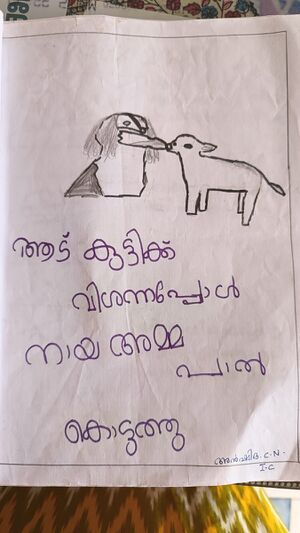 ആട് കുട്ടിക്ക്
വിശന്നപ്പോൾ
നായ അമ്മ
പാൽ
കൊടുത്തു
I.C